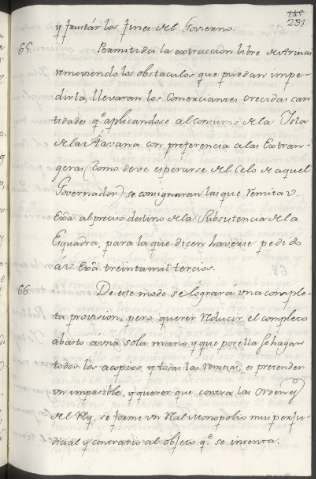 231
y frustrár los fines del Govierno.
65. Permitida la extraccion libre de Arinas
removiendo los obstaculos que puedan impe-
dirla, llevarán los Comerciantes crecidas can-
tidades qe. aplicandose al consumo de la Isla
de la Havana con preferencia a las Extran-
geras, (como deve esperarse del Celo de aquel
Governador) se conseguirán las que remita V.
Exâ. al preciso destino de la subsistencia de la
Esquadra, para la que dicen haverse pedido
á V. Exâ. treinta mil tercios.
66. De este modo se logrará una comple-
ta provision, pero querer reducir el completo
abasto a una sola mano, y que por ella se hagan
todos los acopios, y todas las remesas, es pretender
un imposible, y querer que contra las ordenes
del Rey, se forme un Real Monopolio muy perju-
dicial y contrario al objeto qe. se intenta.